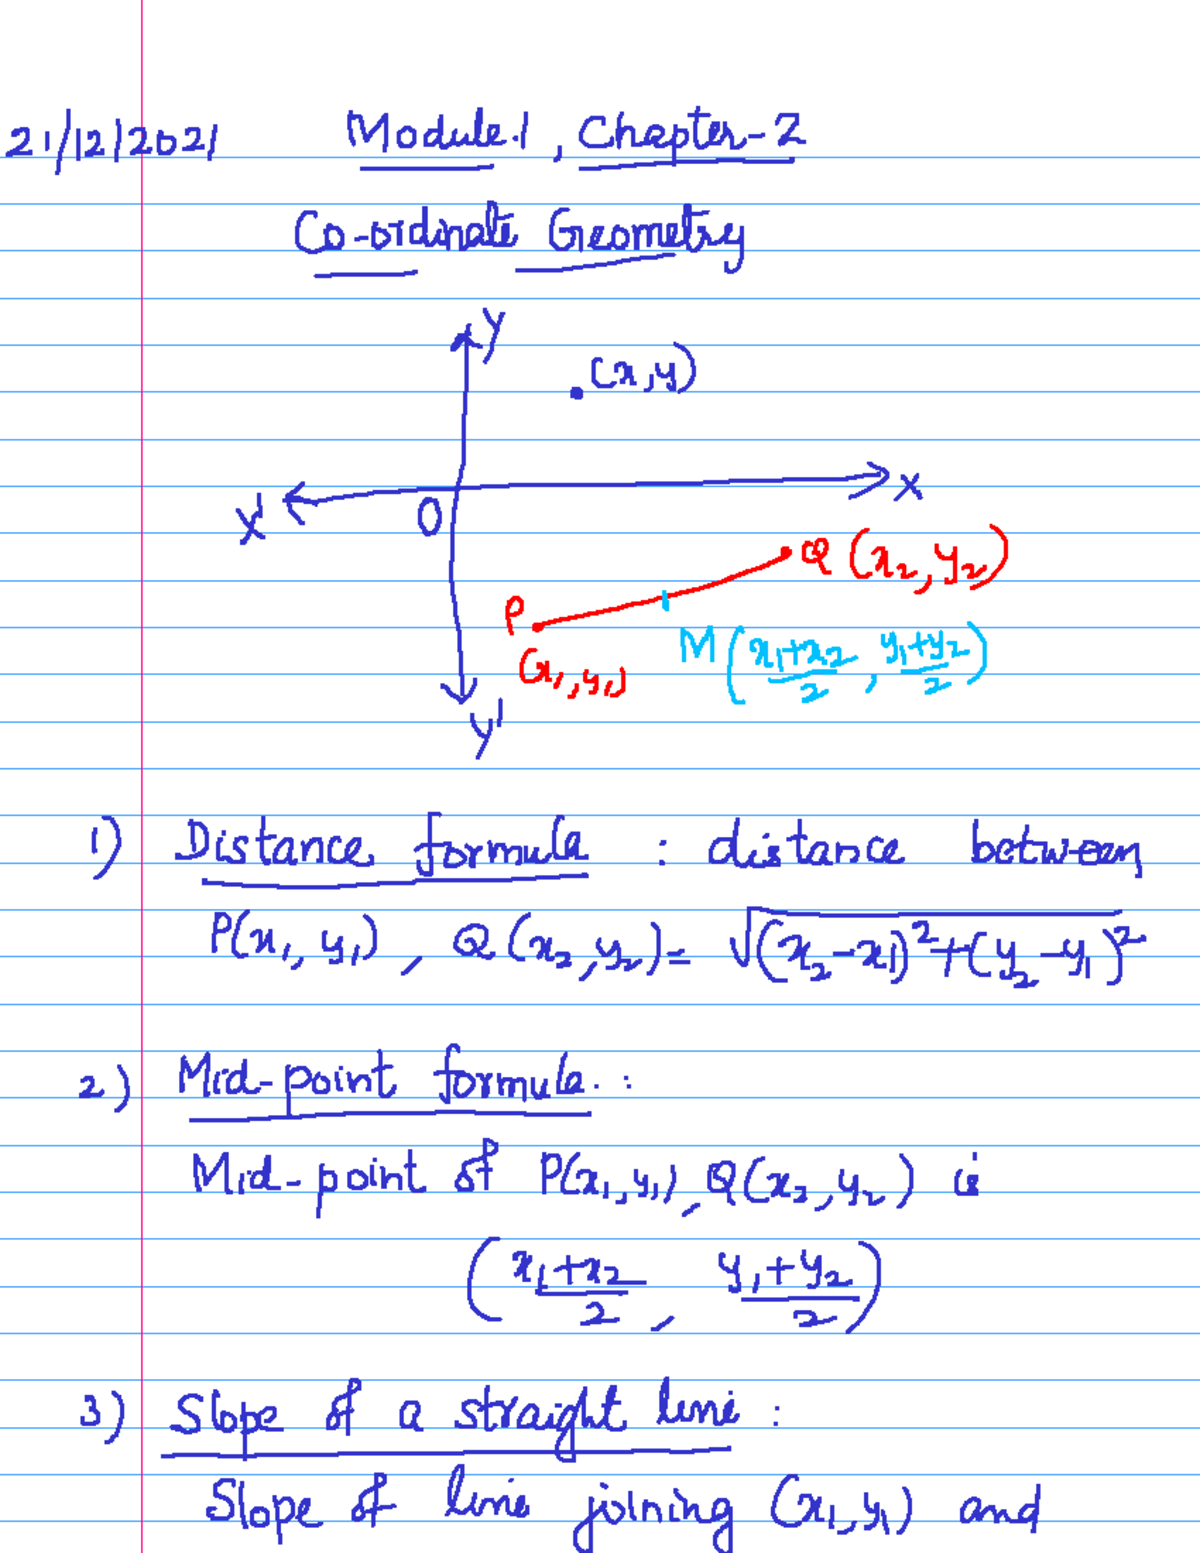 21/12/2021 Module.1, Chapter-2
Co-ordinate Geometry
Y
(x,y)
X' O X
Q (x₂, y₂)
P
(x₁, y₁)
M((x₁+x₂)/2, (y₁+y₂)/2)
Y'
1) Distance formula : distance between
P(x₁, y₁), Q(x₂, y₂) = √((x₂-x₁)²+(y₂-y₁)²)
2) Mid-point formula. :
Mid-point of P(x₁, y₁), Q(x₂, y₂) is
((x₁+x₂)/2, (y₁+y₂)/2)
3) Slope of a straight line :
Slope of line joining (x₁, y₁) and